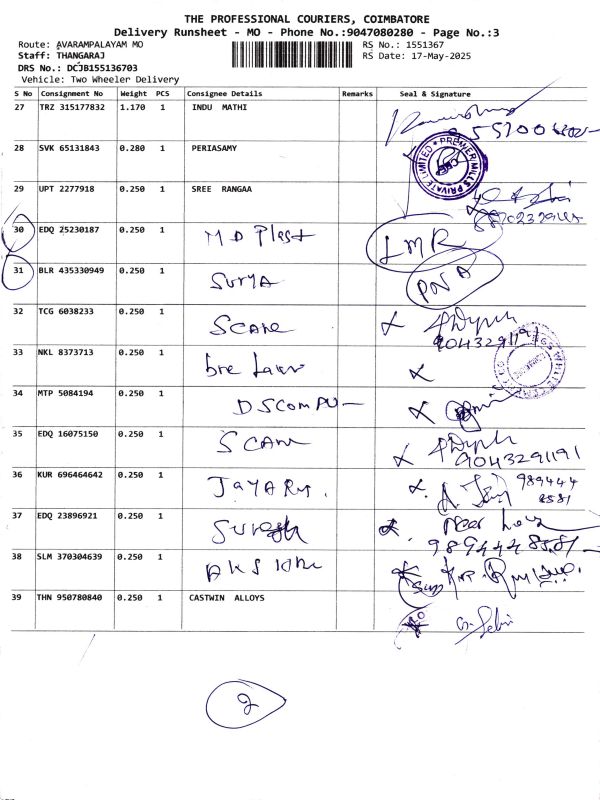 THE PROFESSIONAL COURIERS, COIMBATORE
Delivery Runsheet - MO - Phone No.:9047080280 - Page No.:3
Route: AVARAMPALAYAM MO RS No.: 1551367
Staff: THANGARAJ RS Date: 17-May-2025
DRS No.: DCJB155136703
Vehicle: Two Wheeler Delivery
S No Consignment No Weight PCS Consignee Details Remarks Seal & Signature
27 TRZ 315177832 1.170 1 INDU MATHI
28 SVK 65131843 0.280 1 PERIASAMY
PREMIER MILLS PRIVATE LIMITED
29 UPT 2277918 0.250 1 SREE RANGAA
30 EDQ 25230187 0.250 1 M D Plast LMR
31 BLR 435330949 0.250 1 SURYA PNA
32 TCG 6038233 0.250 1 SCANE
9043291191
33 NKL 8373713 0.250 1
34 MTP 5084194 0.250 1 DSCOMPU
35 EDQ 16075150 0.250 1 SCAN
9043291191
36 KUR 696464642 0.250 1 JAYARM.
989444
8581
37 EDQ 23896921 0.250 1 Suresh
9894448581
38 SLM 370304639 0.250 1
39 THN 950780840 0.250 1 CASTWIN ALLOYS
2